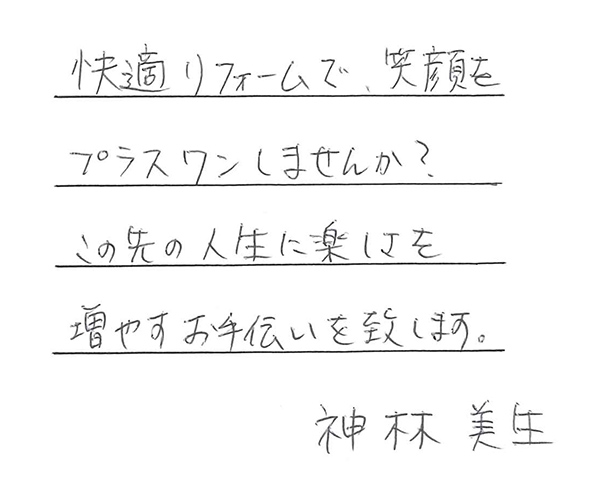 快適リフォームで、笑顔を
プラスワンしませんか?
この先の人生に楽しさを
増やすお手伝いを致します。
神林 美生